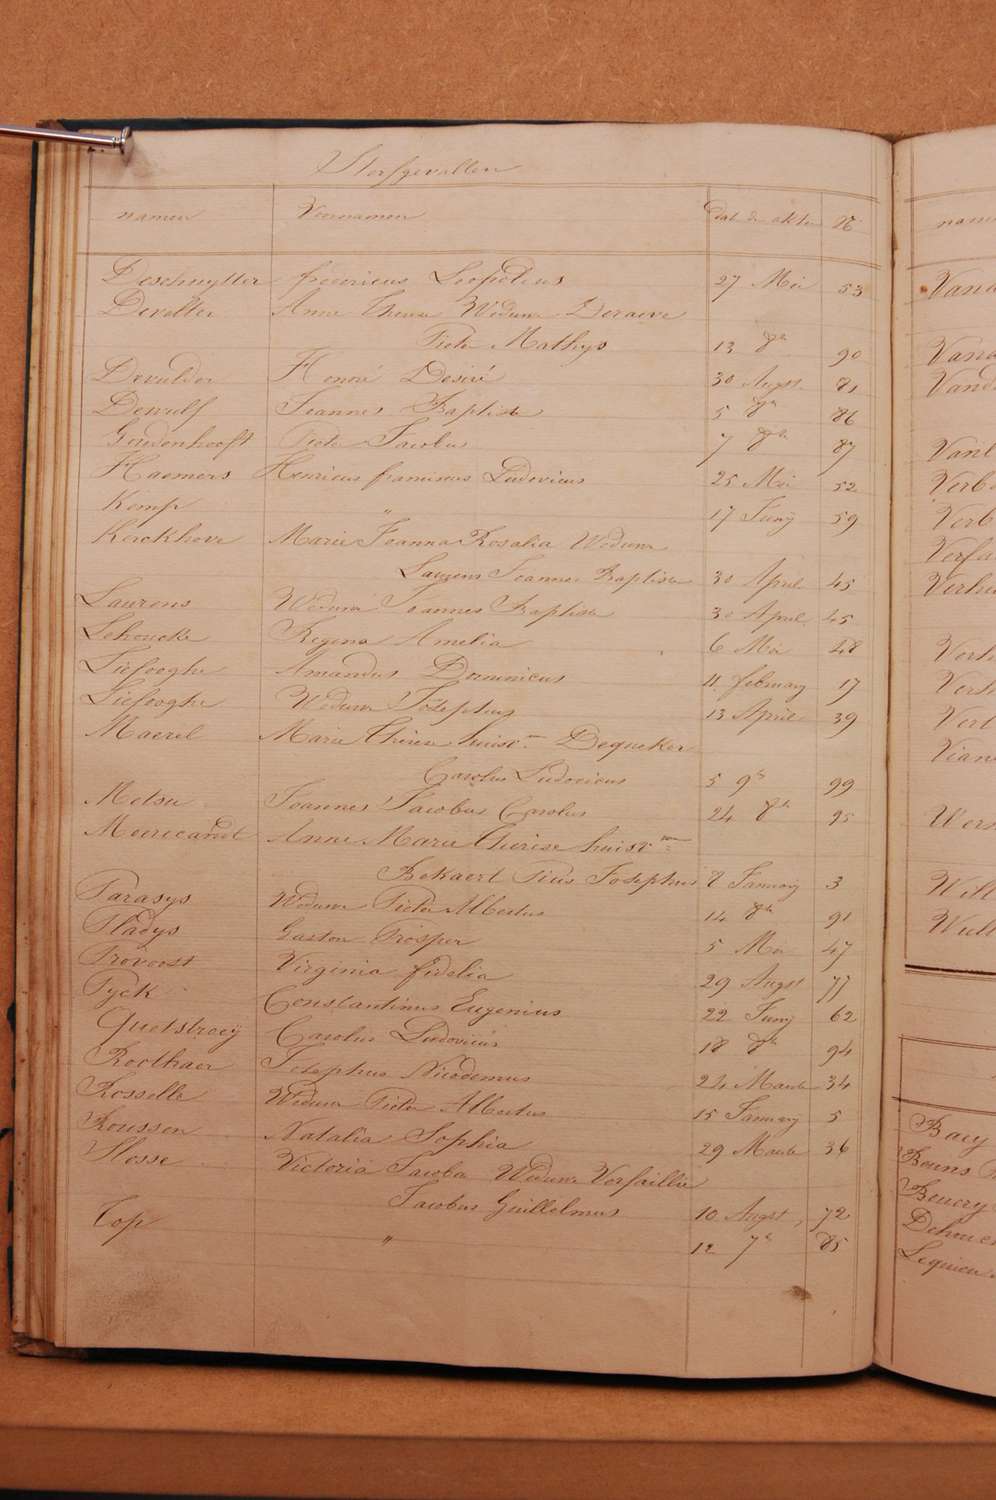 Sterfgevallen
namen Voornamen Dat der akten N°
Deschuytter fredericus Leopoldus 27 Mei 53
Develter Anne Therese Weduwe Deraeve
Pieter Mathys 13 8br 90
Devulder Honoré Desiré 30 Augst 81
Dewulf Joannes Baptiste 5 8br 86
Pieter Jacobus 7 8br 87
Haemers Henricus franciscus Ludovicus 25 Mei 52
Kemp " 17 Junij 59
Kerckhove Marie Joanna Rosalia Weduwe
Laurens Joannes Baptiste 30 April 45
Laurens Weduwe Joannes Baptiste 30 April 45
Lehoucke Regina Amelia 6 Mei 48
Liefooghe Amandus Dominicus 11 february 17
Liefooghe Weduwe Josephus 13 April 39
Maerel Marie Therese huisv. Dequeker
Carolus Ludovicus 5 9br 99
Metsu Joannes Jacobus Carolus 24 8br 95
Anne Marie Therese huisv.
Bekaert Pius Josephus 8 January 3
Parasys Weduwe Pieter Albertus 14 8br 91
Pladys Gaston Prosper 5 Mei 47
Provoost Virginia fidelia 29 Augst 77
Pyck Constantinus Eugenius 22 Junij 62
Quetstroey Carolus Ludovicus 18 8br 94
Roethaer Josephus Nicodemus 24 Maarte 34
Rosselle Weduwe Pieter Albertus 15 January 5
Rousson Natalia Sophia 29 Maarte 36
Slosse Victoria Jacoba Weduwe Versaillie
Jacobus Guillelmus 10 Augst 72
Top " 12 7br 85
Baey
Bouns
Boucry